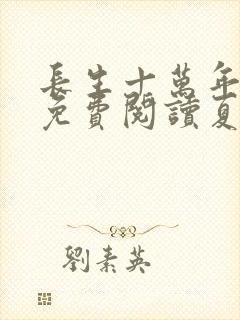 長生十萬年
免費閱讀夏
劉素英